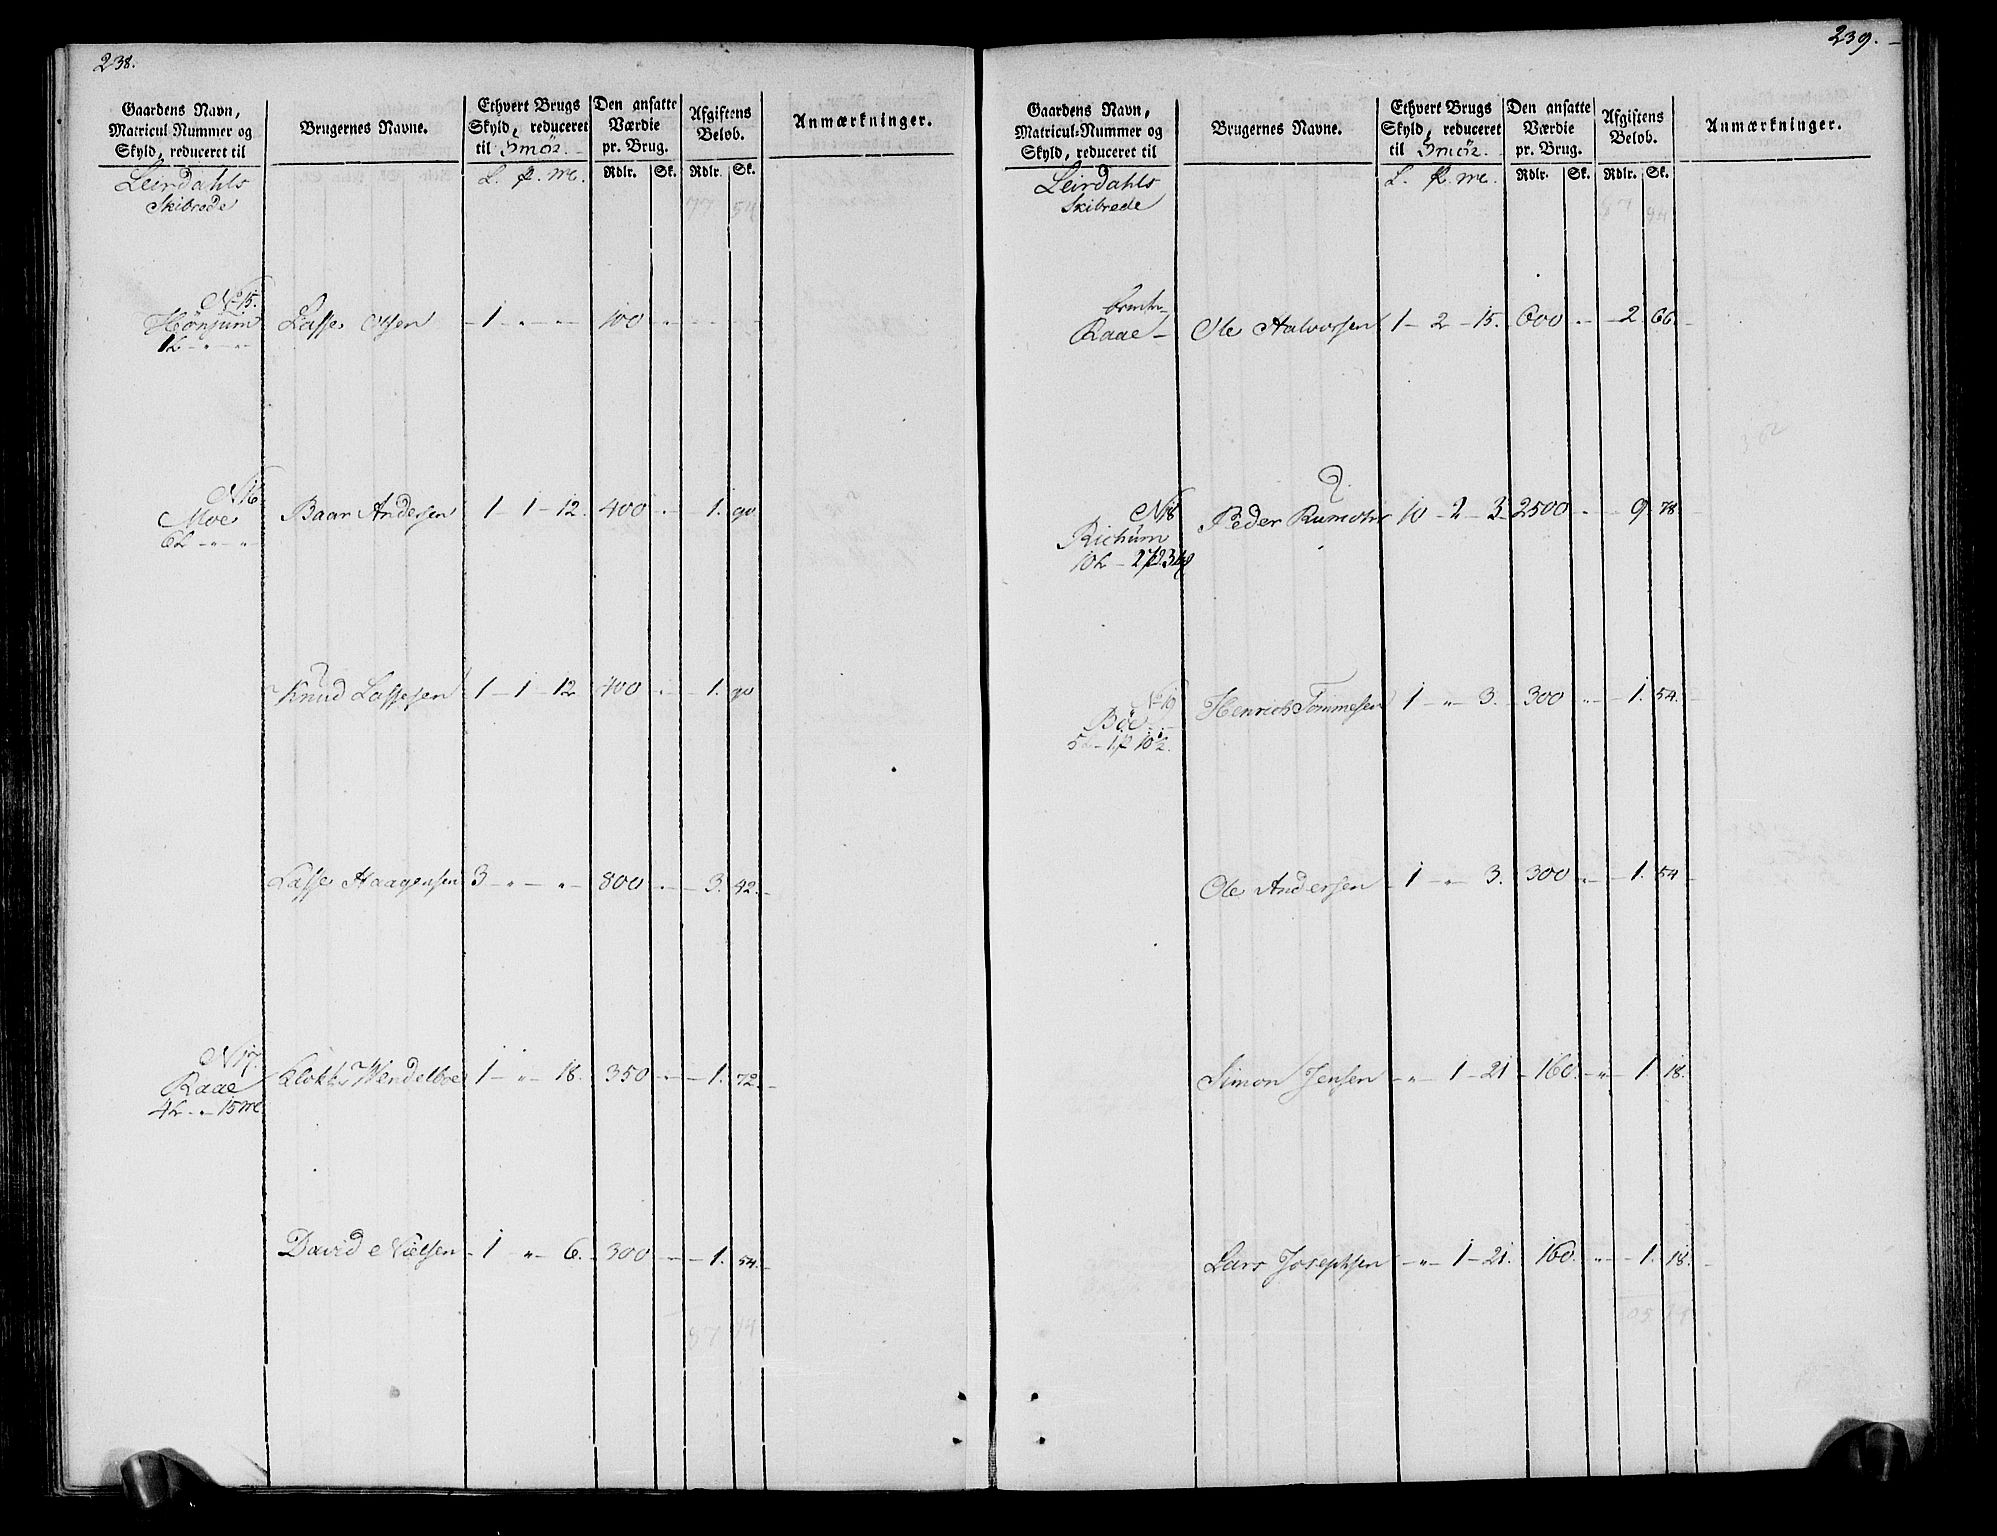 238.
Gaardens Navn, Matricul-Nummer og Skyld, reduceret til
Brugernes Navne.
Ethvert Brugs Skyld, reduceret til Smör.
Den ansatte Værdie pr. Brug.
Afgiftens Belob.
Anmærkninger.
L. p. mc. Rdlr. Sk. Rdlr. Sk.
Leirdahls
Skibrede
77 54
No 15.
Hönjum Lasse Olsen - 1 - „ - „ - 100 - - - -
1L - „ - „
N 16
Moe Baar Andersen 1 - 1 - 12. 400 - - 1. 90
6L - „ - „
Knud Lassesen 1 - 1 - 12 400 - - 1. 90
Lasse Haagensen 3 - „ - „ - 800 - - 3. 42.
N 17.
Raae Klokk: Wendelboe 1 - „ - 18. 350 - - 1. 72.
4L - „ - 15 mc
David Nielsen - 1 „ - 6. - 300 - - 1. 54.
87 94
239.
Gaardens Navn, Matricul-Nummer og Skyld, reduceret til
Brugernes Navne.
Ethvert Brugs Skyld, reduceret til Smör.
Den ansatte Værdie pr. Brug.
Afgiftens Belob.
Anmærkninger.
L. p. mc. Rdlr. Sk. Rdlr. Sk.
Leirdahls
Skibrede
87 94
Raae - Ole Halvorsen 1 - 2 - 15. 600 - - 2. 66.
N 18
Richum Peder Rumohr 10 - 2 - 3. 2500 - - 9. 78.
10L - 2 p 3 mc
No 19
Böe Henrich Tommesen 1 - „ - 3. - 300 - - 1. 54.
5L - 1 p 10½.
Ole Andersen - 1 - „ - 3. - 300 - - 1. 54
Simon Jensen - „ - 1 - 21 - 160. - „ - 1. 18.
Lars Josephsen - „ - 1 - 21. 160. „ - 1. 18.
105 34